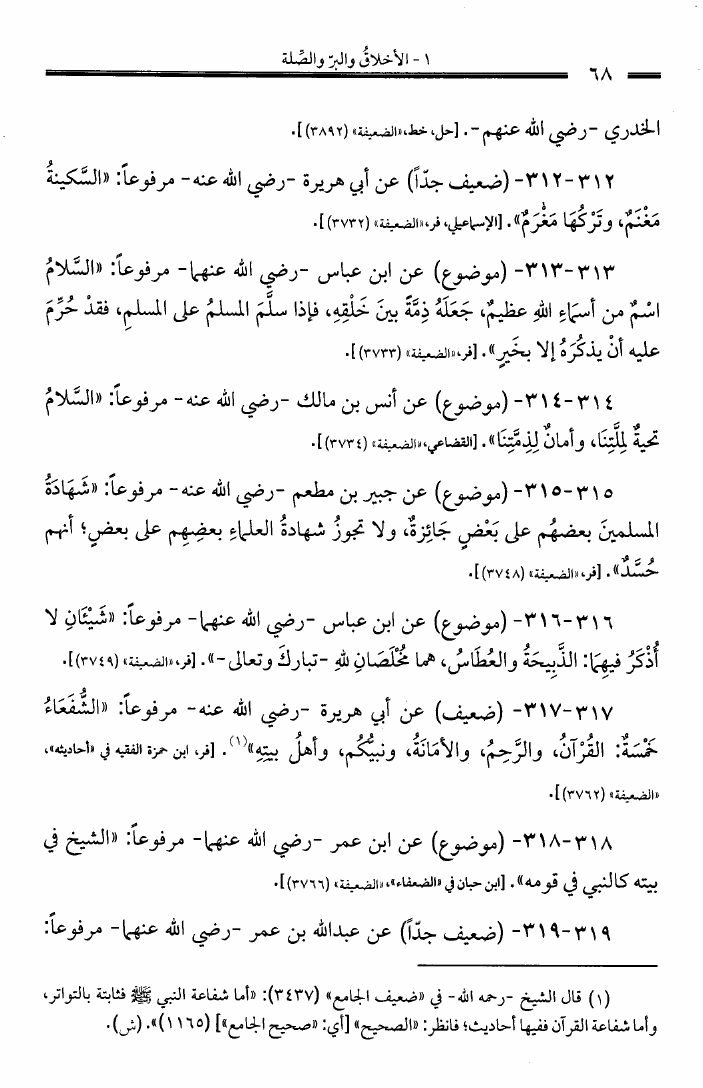 ١ - الأخلاقُ والبرّ والصِّلة
٦٨
الخدري -رضي الله عنهم-. [حل، خط، «الضعيفة» (٣٨٩٢)].
٣١٢-٣١٢- (ضعيف جدّاً) عن أبي هريرة -رضي الله عنه- مرفوعاً: «السَّكينةُ
مَغْنَمٌ، وتَرْكُهَا مَغْرَمٌ». [الإسماعيلي، فر، «الضعيفة» (٣٧٣٢)].
٣١٣-٣١٣- (موضوع) عن ابن عباس -رضي الله عنهما- مرفوعاً: «السَّلامُ
اسْمٌ من أسمَاءِ اللهِ عظيمٌ، جَعَلَهُ ذِمَّةً بينَ خَلْقِهِ، فإذا سلَّمَ المسلمُ على المسلمِ، فقدْ حُرِّمَ
عليه أنْ يذكُرَهُ إلا بخَيرٍ». [فر، «الضعيفة» (٣٧٣٣)].
٣١٤-٣١٤- (موضوع) عن أنس بن مالك -رضي الله عنه- مرفوعاً: «السَّلامُ
تحيةٌ لِملَّتِنَا، وأمانٌ لِذِمَّتِنَا». [القضاعي، «الضعيفة» (٣٧٣٤)].
٣١٥-٣١٥- (موضوع) عن جبير بن مطعم -رضي الله عنه- مرفوعاً: «شَهَادَةُ
المسلمينَ بعضهُم على بَعْضٍ جَائِزةٌ، ولا تجوزُ شهادةُ العلماءِ بعضِهِم على بعضٍ؛ أنهم
حُسَّدٌ». [فر، «الضعيفة» (٣٧٤٨)].
٣١٦-٣١٦- (موضوع) عن ابن عباس -رضي الله عنهما- مرفوعاً: «شَيْئَانِ لا
أُذْكَرُ فيهِمَا: الذَّبِيحَةُ والعُطَاسُ، هما مُخْلَصَانِ للهِ -تباركَ وتعالى-». [فر، «الضعيفة» (٣٧٤٩)].
٣١٧-٣١٧- (ضعيف) عن أبي هريرة -رضي الله عنه- مرفوعاً: «الشُّفَعَاءُ
خَمْسَةٌ: القُرْآنُ، والرَّحِمُ، والأمَانَةُ، ونبيُّكُم، وأهلُ بيتِهِ»(١). [فر، ابن حمزة الفقيه في «أحاديثه»،
«الضعيفة» (٣٧٦٢)].
٣١٨-٣١٨- (موضوع) عن ابن عمر -رضي الله عنهما- مرفوعاً: «الشيخ في
بيته كالنبي في قومه». [ابن حبان في «الضعفاء»، «الضعيفة» (٣٧٦٦)].
٣١٩-٣١٩- (ضعيف جدّاً) عن عبدالله بن عمر -رضي الله عنهما- مرفوعاً:
(١) قال الشيخ -رحمه الله- في «ضعيف الجامع» (٣٤٣٧): «أما شفاعة النبي ﷺ فثابتة بالتواتر،
وأما شفاعة القرآن ففيها أحاديث؛ فانظر: «الصحيح» [أي: «صحيح الجامع»] (١١٦٥)». (ش).